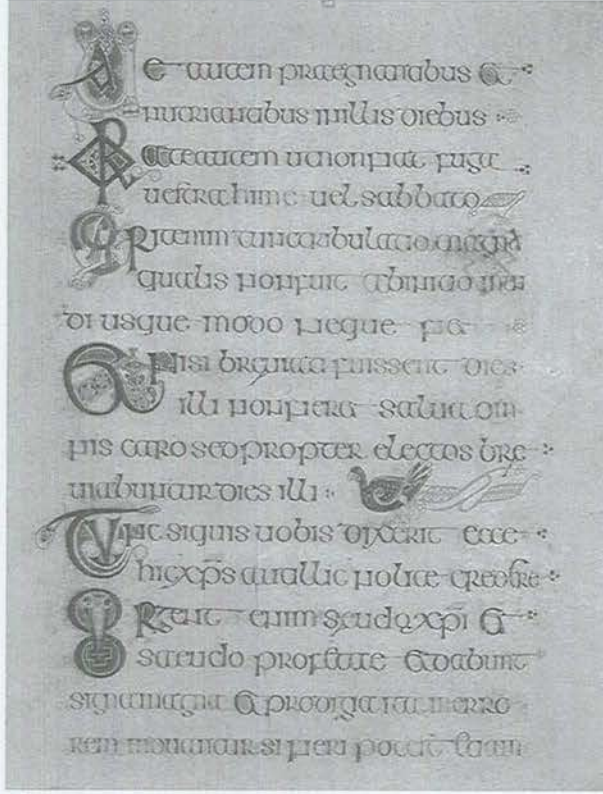 Uae autem praegnantibus et
nutrientibus in illis diebus
Orate autem ut non fiat fuga
uestra hime uel sabbato
Erit enim tunc tribulatio magna
qualis non fuit ab initio mun
di usque modo neque fiet
Et nisi breuiati fuissent dies
illi non fieret salua om
nis caro sed propter electos bre
uiabuntur dies illi
Tunc si quis uobis dixerit ecce
hic xps aut illic nolite credere
Surgent enim seudo xpi et
seudo profetae et dabunt
signa magna et prodigia ita ut in erro
rem si fieri potest etiam